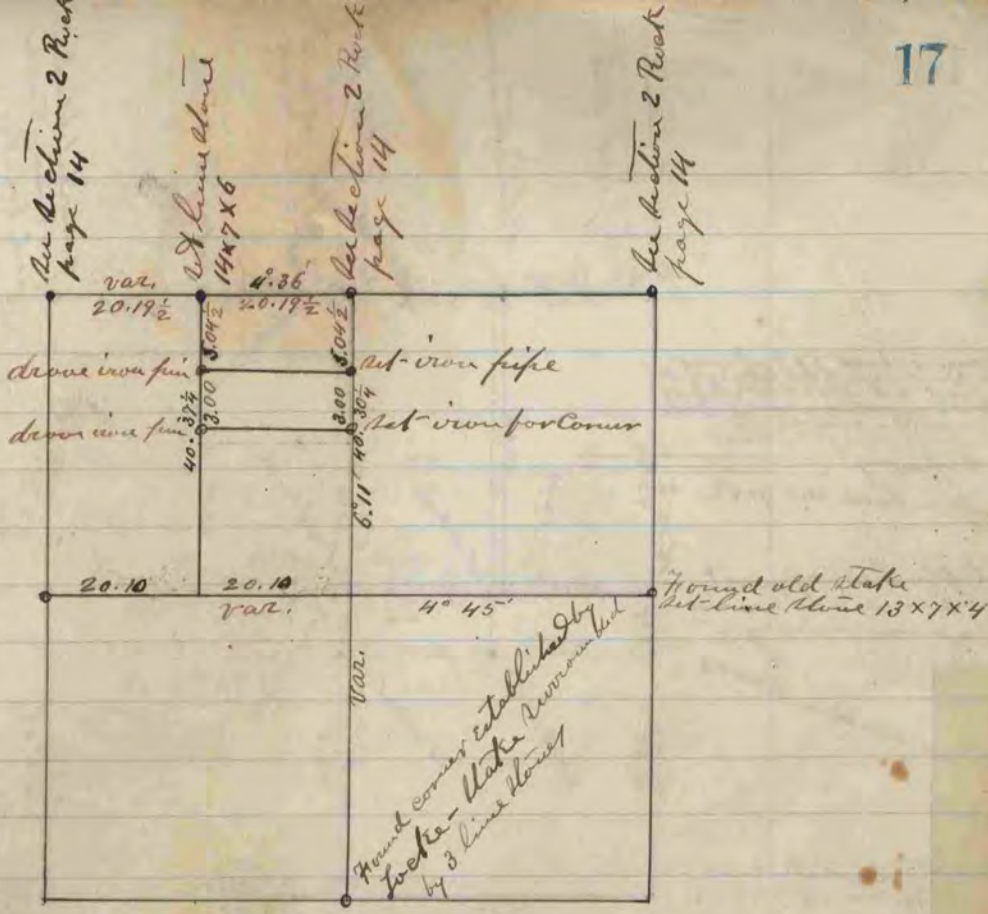 17
See Section 2 Rock
page 14
set lime stone
14x7x6
See Section 2 Rock
page 14
See Section 2 Rock
page 14
var. 4°.36'
20.19½ 20.19½
5.04½ 5.04½
drove iron pin set iron pipe
40.37¼ 3.00 3.00 40.30¼
drove iron pin set iron for Corner
6°11'
20.10 20.10
var. 4° 45'
Found old stake
set lime stone 13x7x4
var.
Found corner established by
Locke - stake surrounded
by 3 lime stones